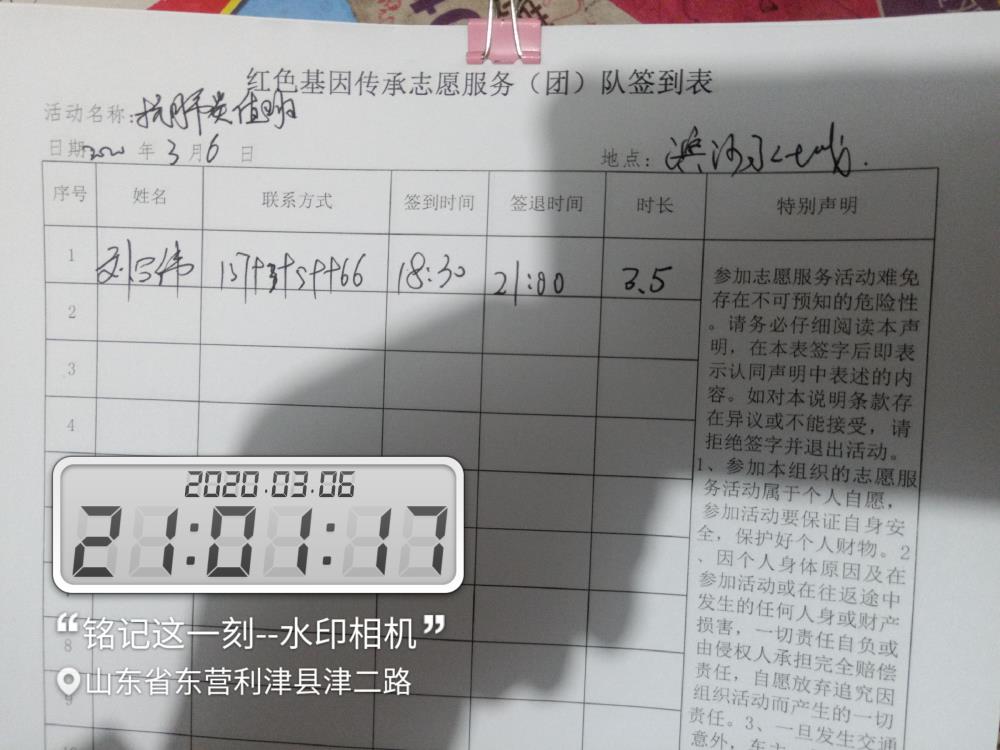 红色基因传承志愿服务（团）队签到表
活动名称:抗肺炎值班
日期2020 年 3 月 6 日
地点:
序号 姓名 联系方式 签到时间 签退时间 时长 特别声明
1 18:30 21:00 3.5
2
3
4
8
9
参加志愿服务活动难免
存在不可预知的危险性
。请务必仔细阅读本声
明，在本表签字后即表
示认同声明中表述的内
容。如对本说明条款存
在异议或不能接受，请
拒绝签字并退出活动。
1、参加本组织的志愿服
务活动属于个人自愿，
参加活动要保证自身安
全，保护好个人财物。2
、因个人身体原因及在
参加活动或在往返途中
发生的任何人身或财产
损害，一切责任自负或
由侵权人承担完全赔偿
责任，自愿放弃追究因
组织活动而产生的一切
责任。3、一旦发生交通
意外，
2020.03.06
21:01:17
“铭记这一刻--水印相机”
山东省东营利津县津二路